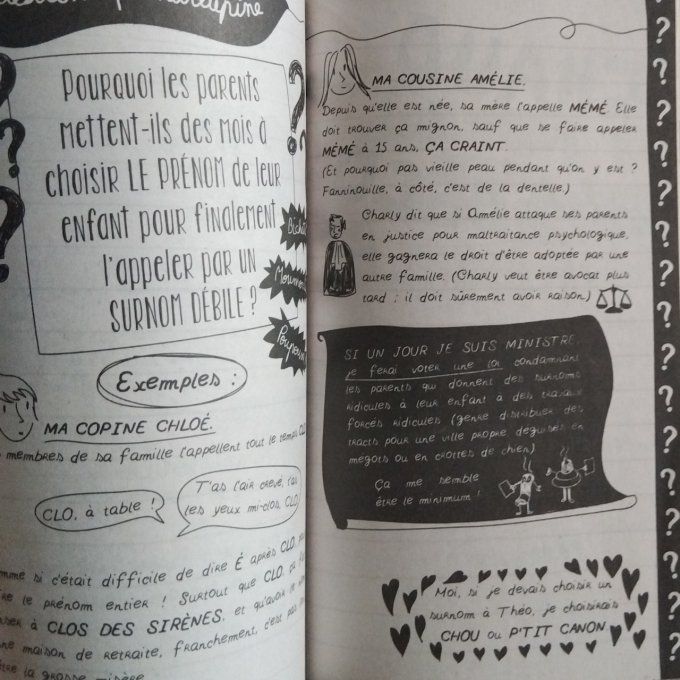 Pourquoi les parents
mettent-ils des mois à
choisir LE PRÉNOM de leur
enfant pour finalement
l'appeler par un
SURNOM DÉBILE ?
Exemples :
MA COPINE CHLOÉ.
membres de sa famille l'appellent tout le temps
CLO, à table !
T'as l'air crevé, t'as
les yeux mi-clos, CLO
si c'était difficile de dire É après CLO,
le prénom entier ! Surtout que CLO, ça
à CLOS DES SIRÈNES, et qu'avoir
maison de retraite, franchement, c'est pas
la grosse misère
MA COUSINE AMÉLIE.
Depuis qu'elle est née, sa mère l'appelle MÉMÉ. Elle
doit trouver ça mignon, sauf que se faire appeler
MÉMÉ à 15 ans, ÇA CRAINT.
(Et pourquoi pas vieille peau pendant qu'on y est ?
Fanninouille, à côté, c'est de la dentelle.)
Charly dit que si Amélie attaque ses parents
en justice pour maltraitance psychologique,
elle gagnera le droit d'être adoptée par une
autre famille. (Charly veut être avocat plus
tard ; il doit sûrement avoir raison.)
SI UN JOUR JE SUIS MINISTRE,
je ferai voter une loi condamnant
les parents qui donnent des surnoms
ridicules à leur enfant à des travaux
forcés ridicules (genre distribuer des
tracts pour une ville propre déguisés en
mégots ou en crottes de chien).
Ça me semble
être le minimum !
Moi, si je devais choisir un
surnom à Théo, je choisirais
CHOU ou P'TIT CANON